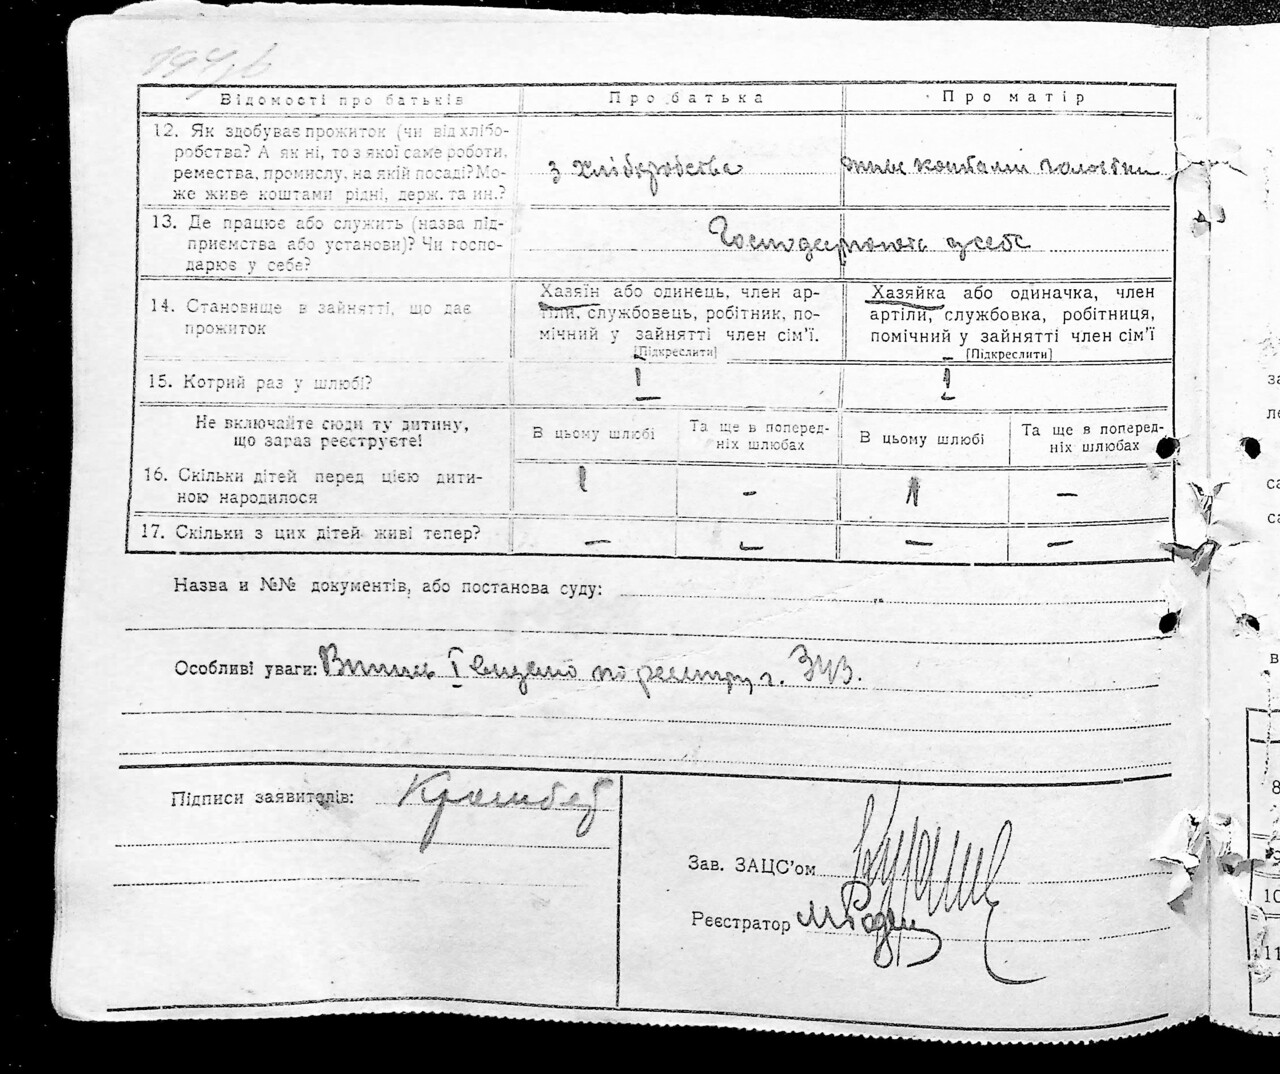 Відомості про батьків
Про батька
Про матір
12. Як здобуває прожиток (чи від хлібо-
робства? А як ні, то з якої саме роботи,
ремества, промислу, на якій посаді? Мо-
же живе коштами рідні, держ. та ин.?
з хліборобства
живе коштами чоловіка
13. Де працює або служить (назва під-
приємства або установи)? Чи госпо-
дарює у себе?
Господарюють у себе
14. Становище в зайнятті, що дає
прожиток
Хазяїн або одинець, член ар-
тілі, службовець, робітник, по-
мічний у зайнятті член сім'ї.
[Підкреслити]
Хазяйка або одиначка, член
артіли, службовка, робітниця,
помічний у зайнятті член сім'ї
[Підкреслити]
15. Котрий раз у шлюбі?
1
1
Не включайте сюди ту дитину,
що зараз реєструєте!
В цьому шлюбі
Та ще в поперед-
ніх шлюбах
В цьому шлюбі
Та ще в поперед-
ніх шлюбах
16. Скільки дітей перед цією дити-
ною народилося
1
-
1
-
17. Скільки з цих дітей живі тепер?
-
-
-
-
Назва и №№ документів, або постанова суду:
Особливі уваги: Випись І видано по реєстру г. 343.
Підписи заявителів:
Зав. ЗАЦС'ом
Реєстратор